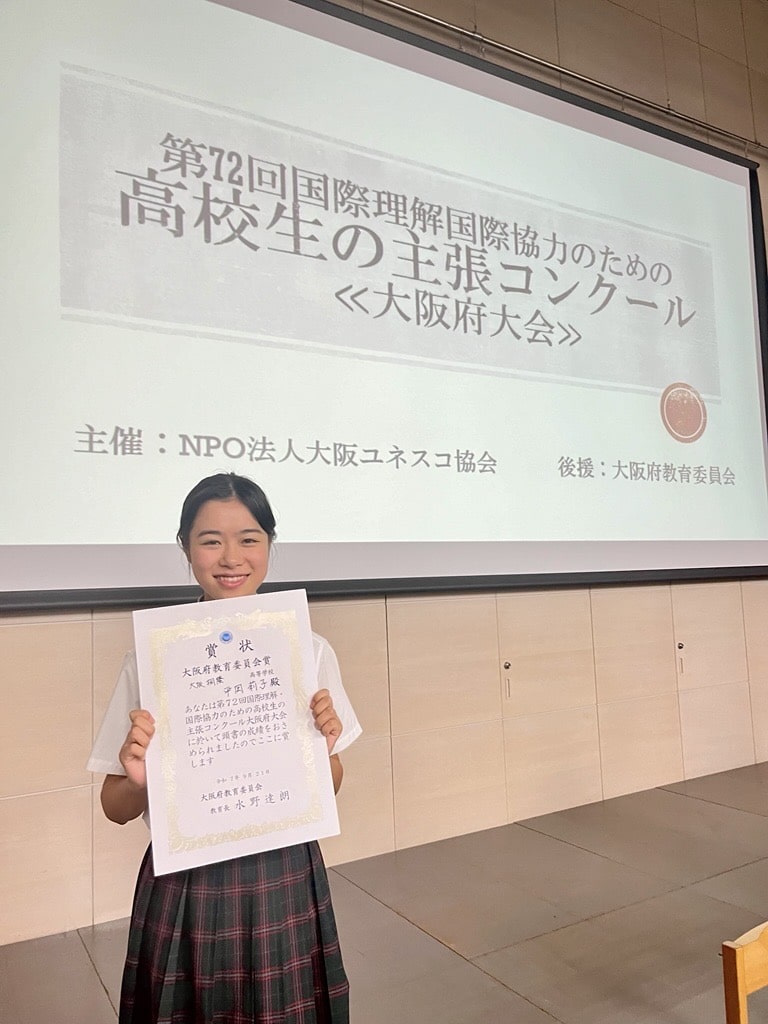 第72回国際理解国際協力のための
高校生の主張コンクール
≪大阪府大会≫
主催：NPO法人大阪ユネスコ協会
後援：大阪府教育委員会
賞 状
大阪府教育委員会賞
大阪 高等学校
中田 莉子 殿
あなたは第７２回国際理解・
国際協力のための高校生の
主張コンクール大阪府大会
に於いて頭書の成績をおさ
められましたのでここに賞
します
大阪府教育委員会
教育長 水野達朗